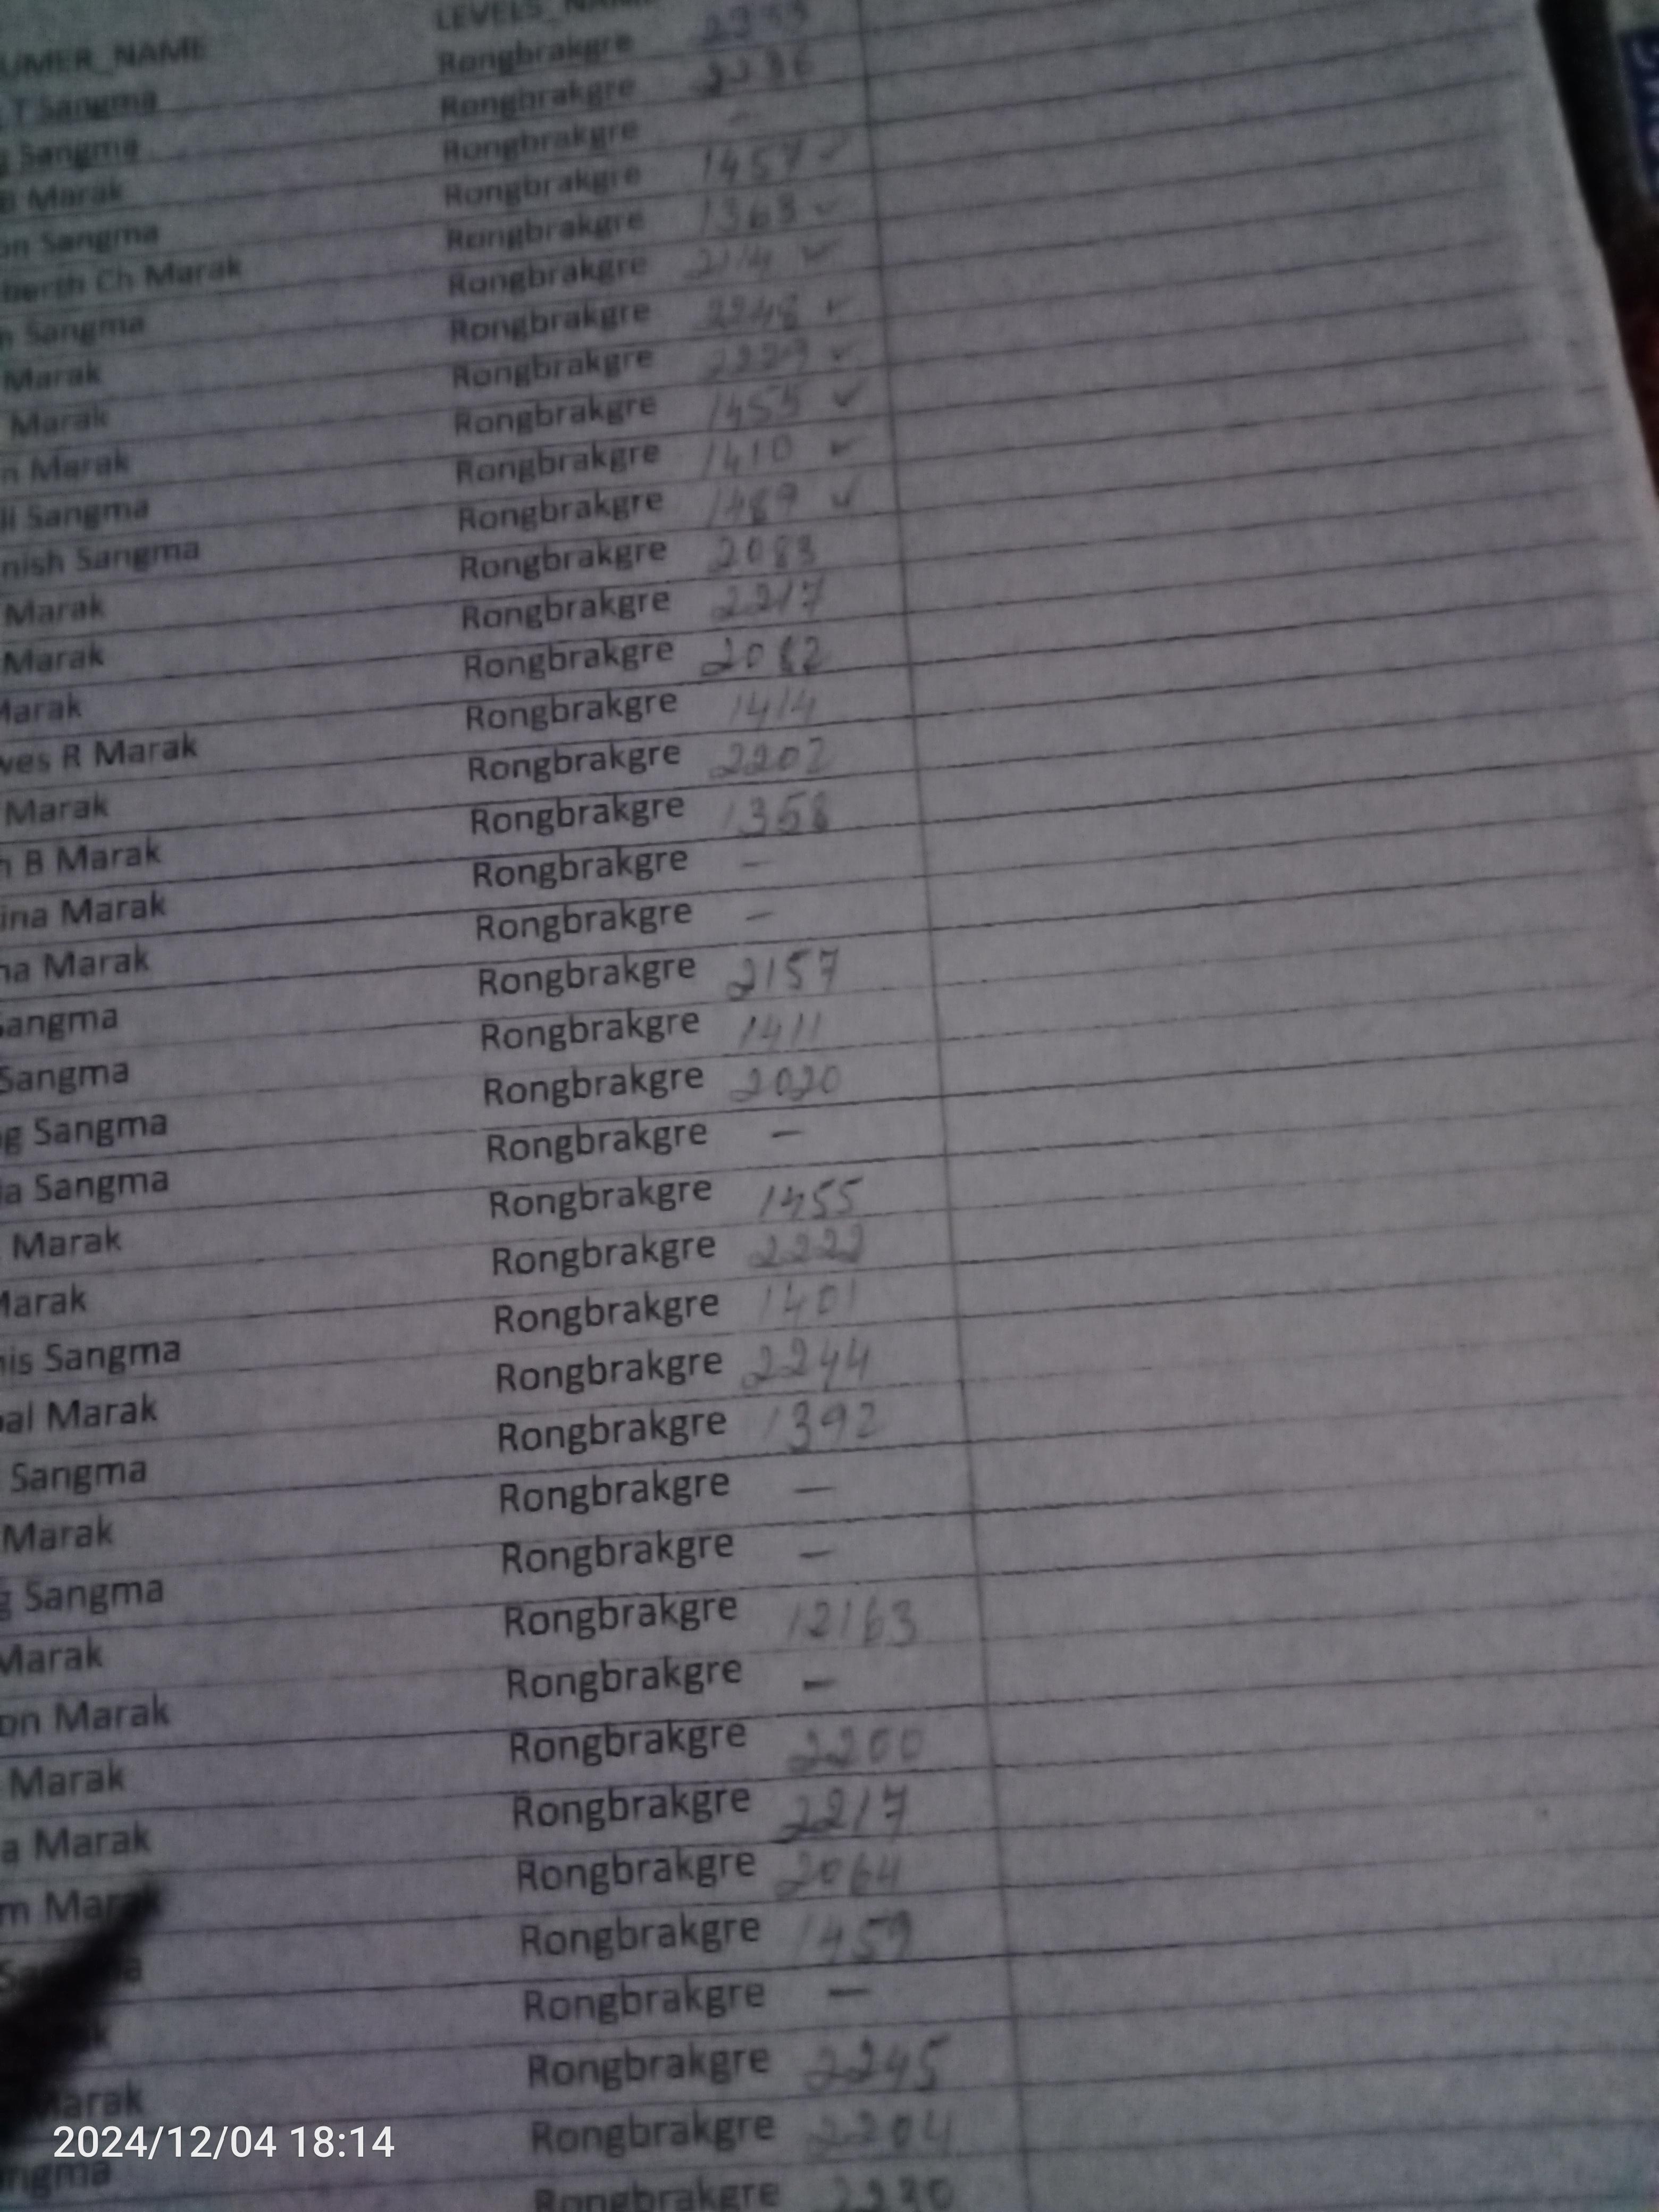 UMER_NAME LEVELS_NAME
T Sangma Rongbrakgre
Sangma Rongbrakgre 2236
B Marak Rongbrakgre –
on Sangma Rongbrakgre 1457 ✓
berth Ch Marak Rongbrakgre 1363 ✓
n Sangma Rongbrakgre 2114 ✓
Marak Rongbrakgre 2248 ✓
Marak Rongbrakgre 2229 ✓
n Marak Rongbrakgre 1455 ✓
li Sangma Rongbrakgre 1410 ✓
nish Sangma Rongbrakgre 1489 ✓
Marak Rongbrakgre 2083
Marak Rongbrakgre 2217
Marak Rongbrakgre 2082
ves R Marak Rongbrakgre 1414
Marak Rongbrakgre 2202
n B Marak Rongbrakgre 1358
ina Marak Rongbrakgre –
na Marak Rongbrakgre –
Sangma Rongbrakgre 2157
Sangma Rongbrakgre 1411
ng Sangma Rongbrakgre 2020
ia Sangma Rongbrakgre –
Marak Rongbrakgre 1455
Marak Rongbrakgre 2222
nis Sangma Rongbrakgre 1401
nal Marak Rongbrakgre 2244
Sangma Rongbrakgre 1392
Marak Rongbrakgre –
g Sangma Rongbrakgre –
Marak Rongbrakgre 12163
on Marak Rongbrakgre –
Marak Rongbrakgre 2200
a Marak Rongbrakgre 2217
m Marak Rongbrakgre 2064
Rongbrakgre 1459
Rongbrakgre –
Marak Rongbrakgre 2245
ngma Rongbrakgre 2204
Rongbrakgre 2230
2024/12/04 18:14